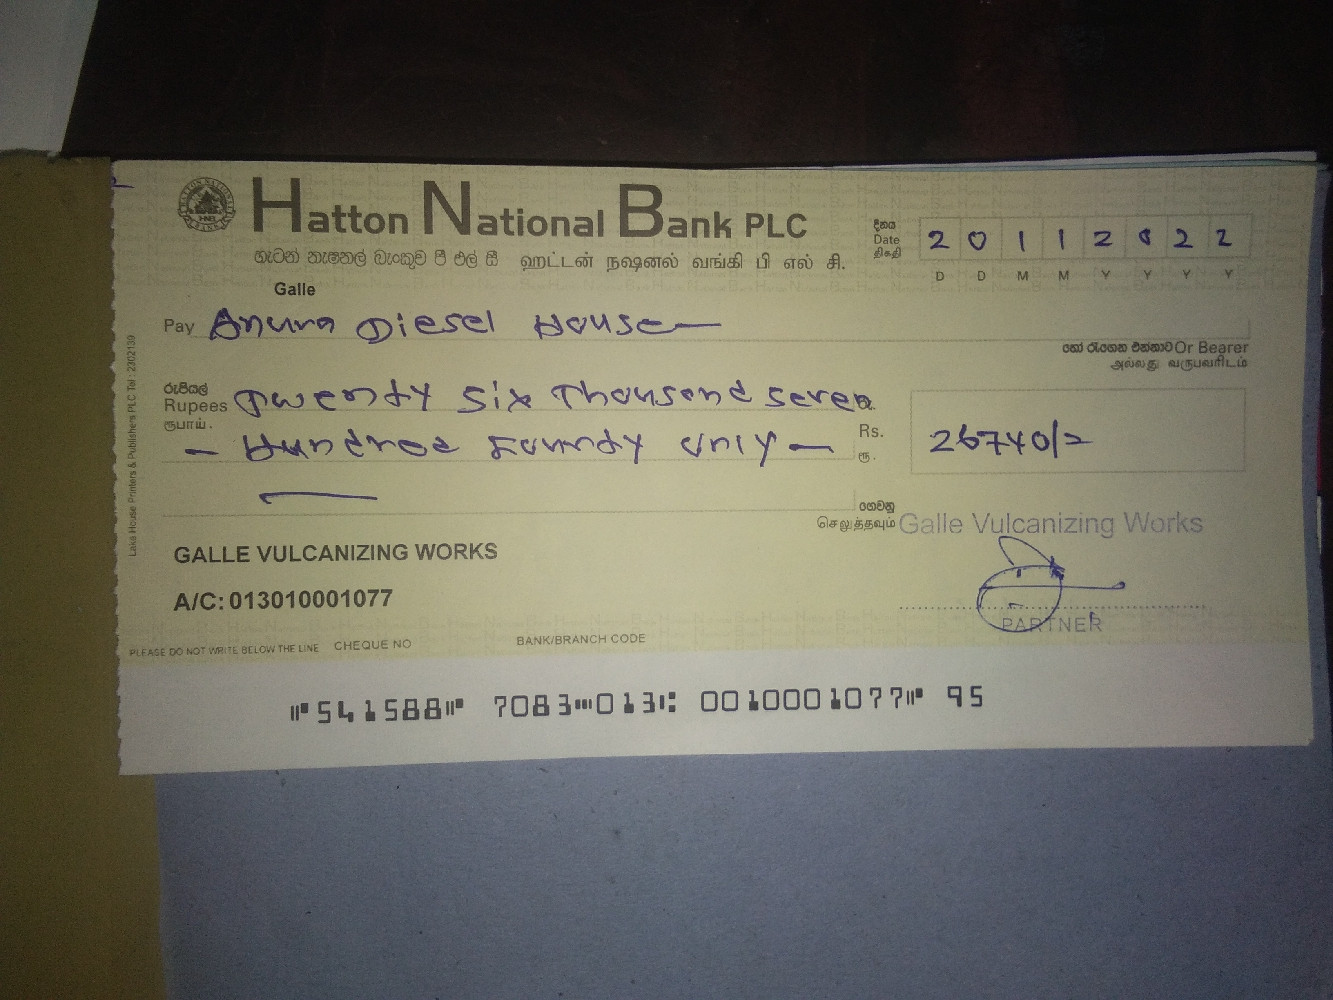 Hatton National Bank PLC
හැටන් නැෂනල් බැංකුව පී එල් සී ஹட்டன் நஷனல் வங்கி பி எல் சி.
දිනය
Date
திகதி
2 0 1 1 2 0 2 2
D D M M Y Y Y Y
Galle
Pay Anura Diesel House
හෝ රැගෙන එන්නාට Or Bearer
அல்லது வருபவரிடம்
රුපියල්
Rupees Twenty Six Thousand Seven
ரூபாய்.
- Hundred Fourty Only -
රු.
Rs. 26740/=
ரூ.
ගෙවනු
செலுத்தவும் Galle Vulcanizing Works
GALLE VULCANIZING WORKS
A/C: 013010001077
PARTNER
PLEASE DO NOT WRITE BELOW THE LINE CHEQUE NO BANK/BRANCH CODE
⑈541588⑈ 7083⑉013⑆ 0010001077⑈ 95
Lake House Printers & Publishers PLC Tel : 2302139
HATTON NATIONAL BANK
HNB